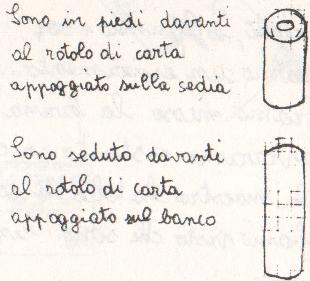 Sono in piedi davanti
al rotolo di carta
appoggiato sulla sedia
Sono seduto davanti
al rotolo di carta
appoggiato sul banco